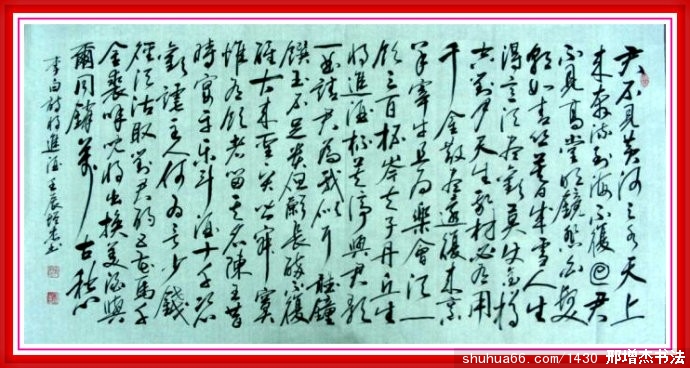 君不见黄河之水天上
来奔流到海不復回君
不見高堂明鏡悲白髮
朝如青丝暮成雪人生
得意须尽歡莫使金樽
空對月天生我材必有用
千金散盡還復来烹
羊宰牛且为樂會须一
飲三百杯岑夫子丹丘生
将進酒杯莫停與君歌
一曲請君为我倾耳聽鐘
馔玉不足贵但願長醉不復
醒古来聖賢皆寂寞
惟有飲者留其名陳王昔
時宴平乐斗酒十千恣
歡謔主人何为言少錢
徑须沽取對君酌五花馬千
金裘呼兒将出换美酒與
爾同銷萬古愁
李白詩将進酒壬辰增杰書
shuhua66.com/1430 邢增杰书法